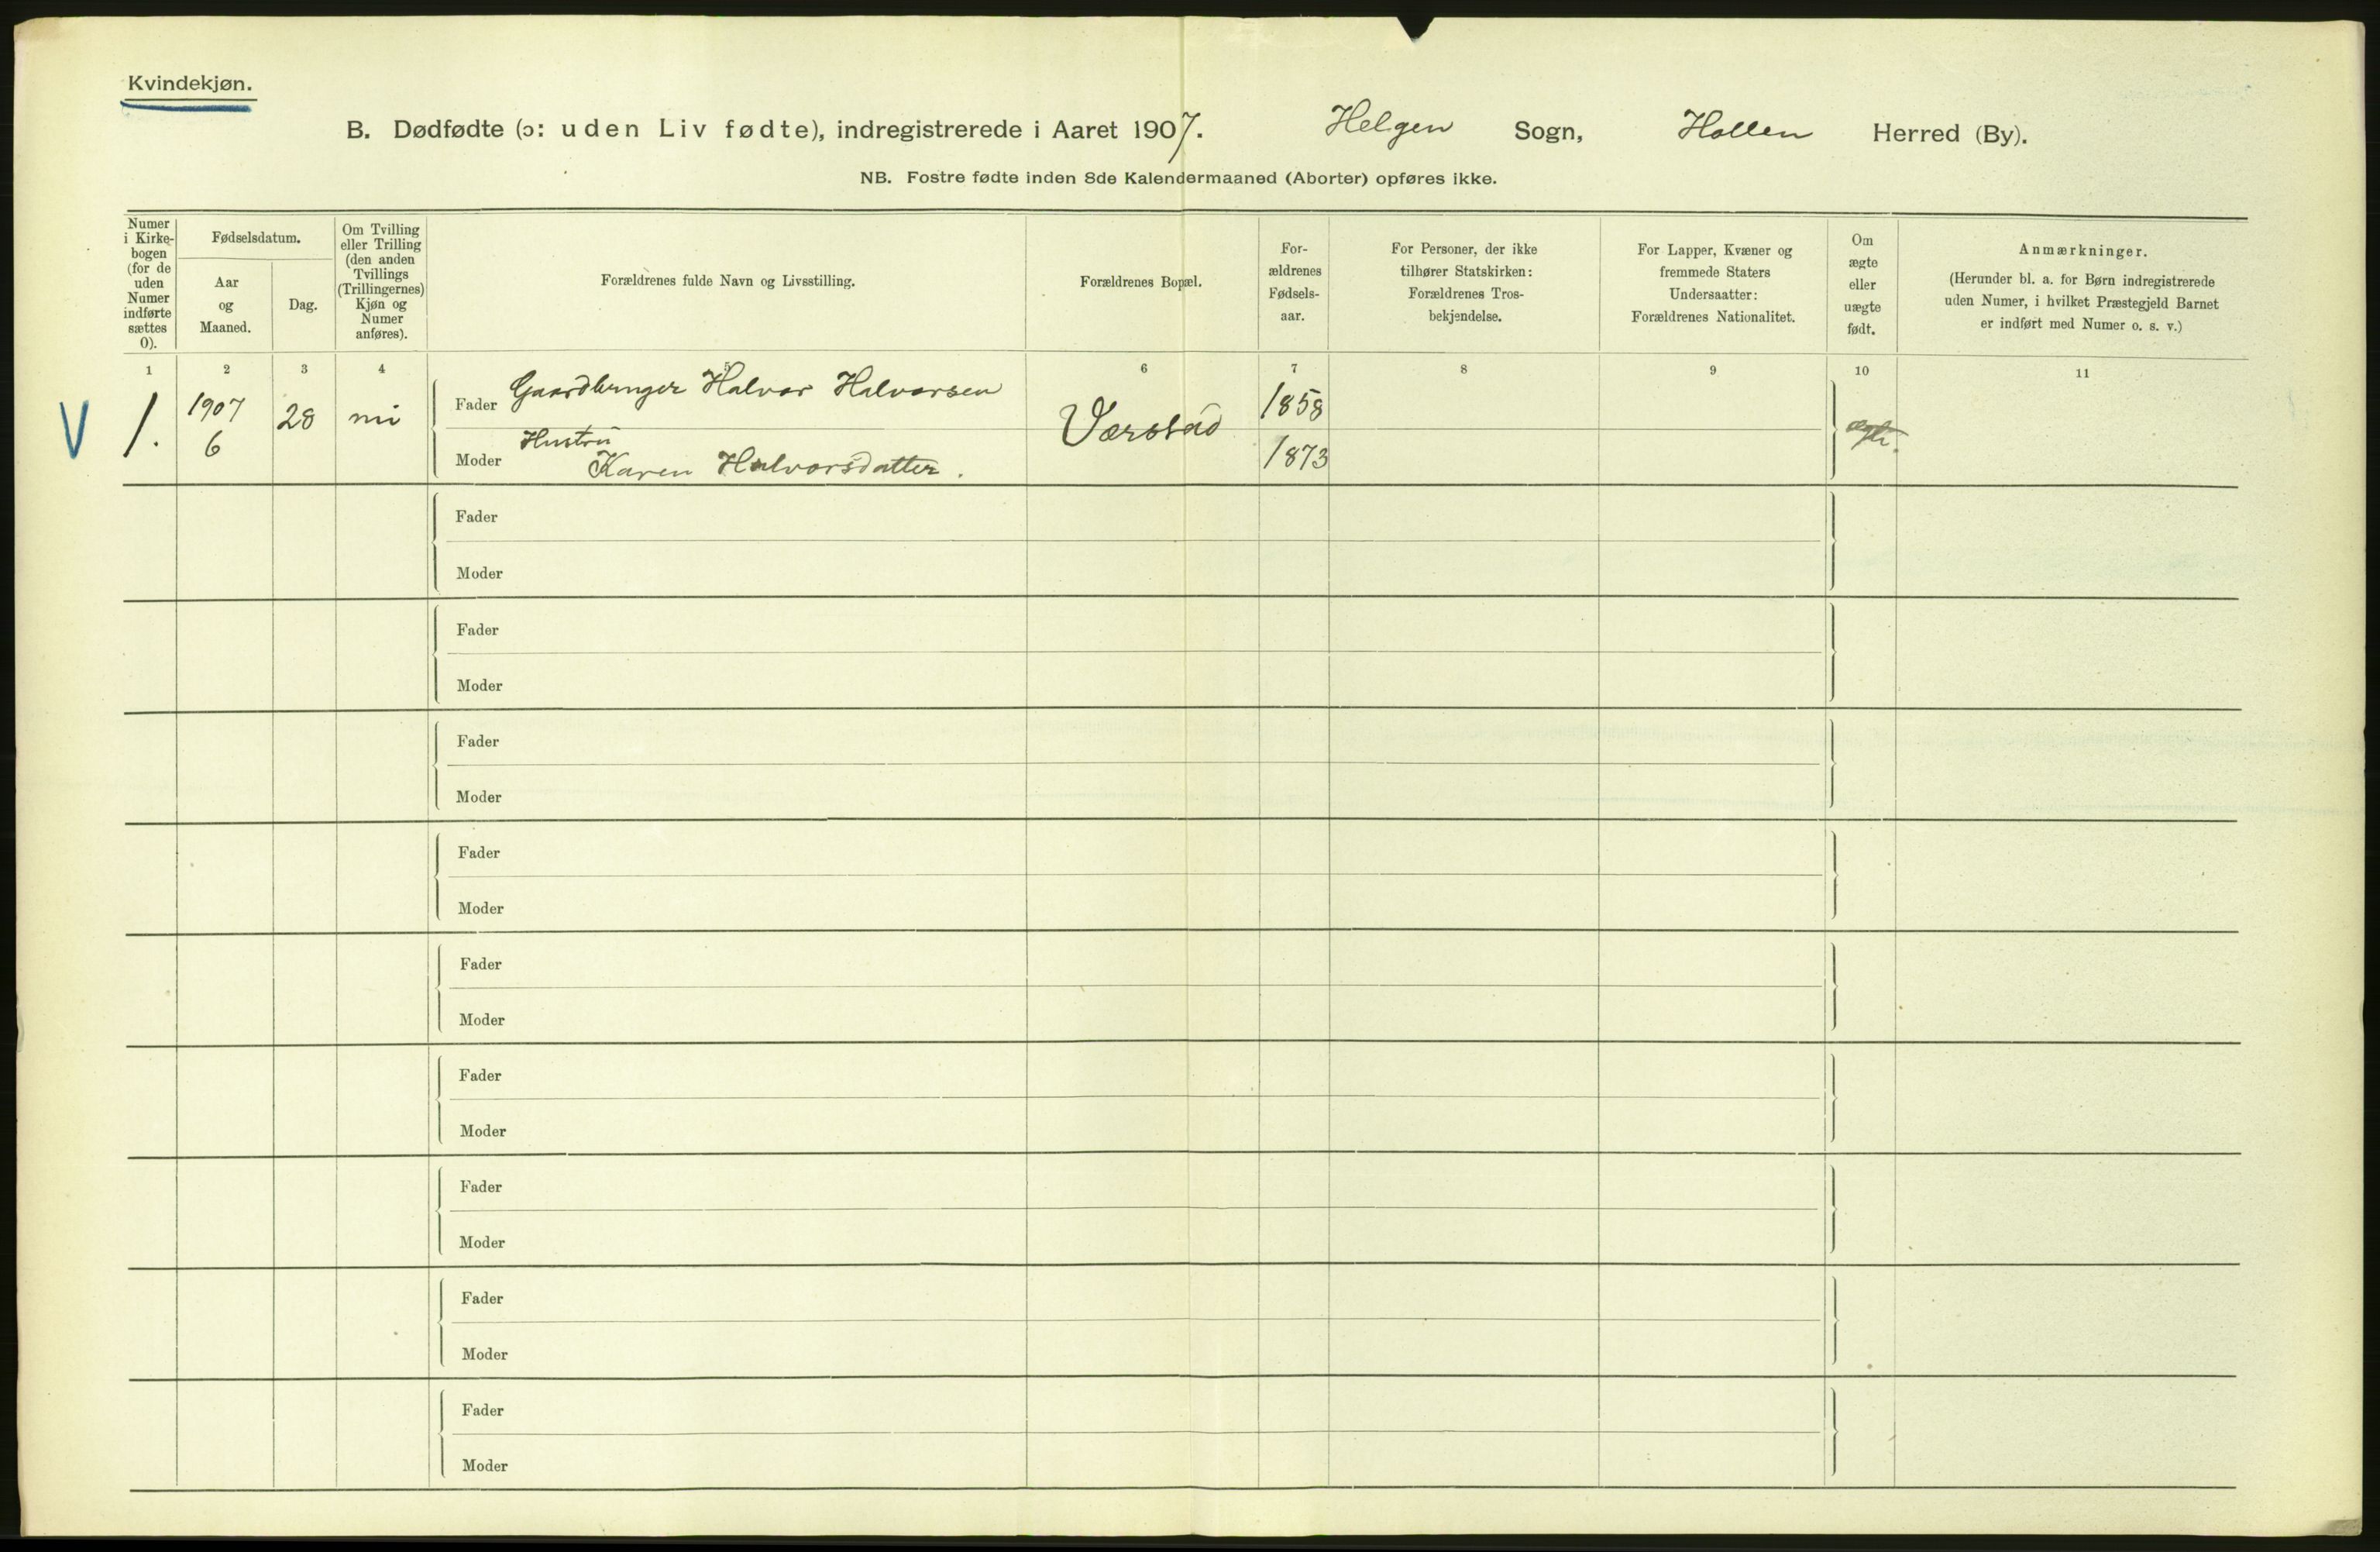 Kvindekjøn.
B. Dødfødte (ɔ: uden Liv fødte), indregistrerede i Aaret 1907. Helgen Sogn, Hollen Herred (By).
NB. Fostre fødte inden 8de Kalendermaaned (Aborter) opføres ikke.
Numer
i Kirke-
bogen
(for de
uden
Numer
indførte
sættes
0).
Fødselsdatum.
Aar
og
Maaned.
Dag.
Om Tvilling
eller Trilling
(den anden
Tvillings
(Trillingernes)
Kjøn og
Numer
anføres).
Forældrenes fulde Navn og Livsstilling.
Forældrenes Bopæl.
For-
ældrenes
Fødsels-
aar.
For Personer, der ikke
tilhører Statskirken:
Forældrenes Tros-
bekjendelse.
For Lapper, Kvæner og
fremmede Staters
Undersaatter:
Forældrenes Nationalitet.
Om
ægte
eller
uægte
født.
Anmærkninger.
(Herunder bl. a. for Børn indregistrerede
uden Numer, i hvilket Præstegjeld Barnet
er indført med Numer o. s. v.)
1 2 3 4 5 6 7 8 9 10 11
V 1. 1907 6 28
Fader Gaardbruger Halvor Halvorsen
Moder Hustru
Karen Halvorsdatter.
Værstad
1858
1873
ægte.
Fader
Moder
Fader
Moder
Fader
Moder
Fader
Moder
Fader
Moder
Fader
Moder
Fader
Moder
Fader
Moder
Fader
Moder